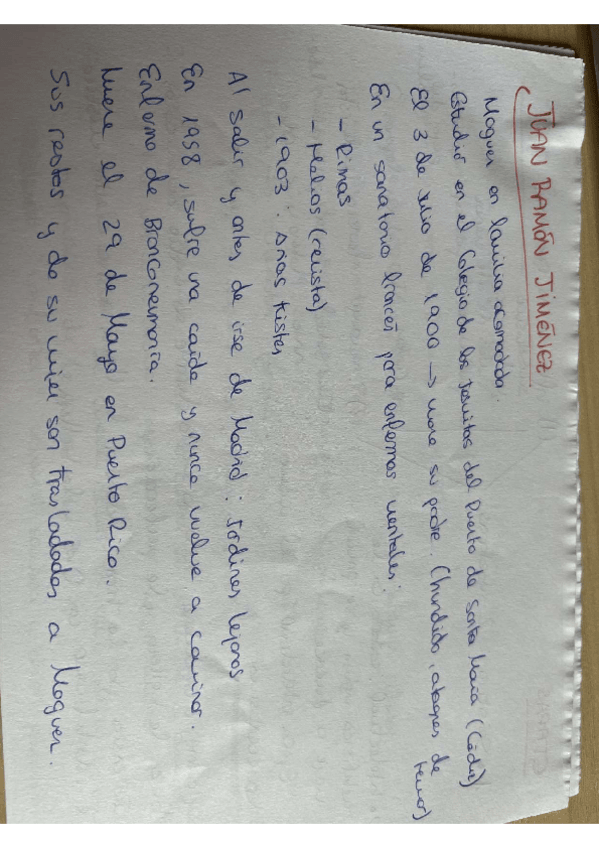 JUAN RAMÓN JIMÉNEZ
Moguer en familia acomodada.
Estudió en el Colegio de los Jesuitas del Puerto de Santa María (Cádiz)
El 3 de Julio de 1900 → muere su padre. (hundido, ataques de
terror)
En un sanatorio francés para enfermos mentales:
- Rimas
- Helios (revista)
- 1903: Arias tristes
Al salir y antes de irse de Madrid: Jardines lejanos
En 1958, sufre una caída y nunca vuelve a caminar.
Enfermo de Bronconeumonía.
Muere el 29 de Mayo en Puerto Rico.
Sus restos y de su mujer son trasladados a Moguer.